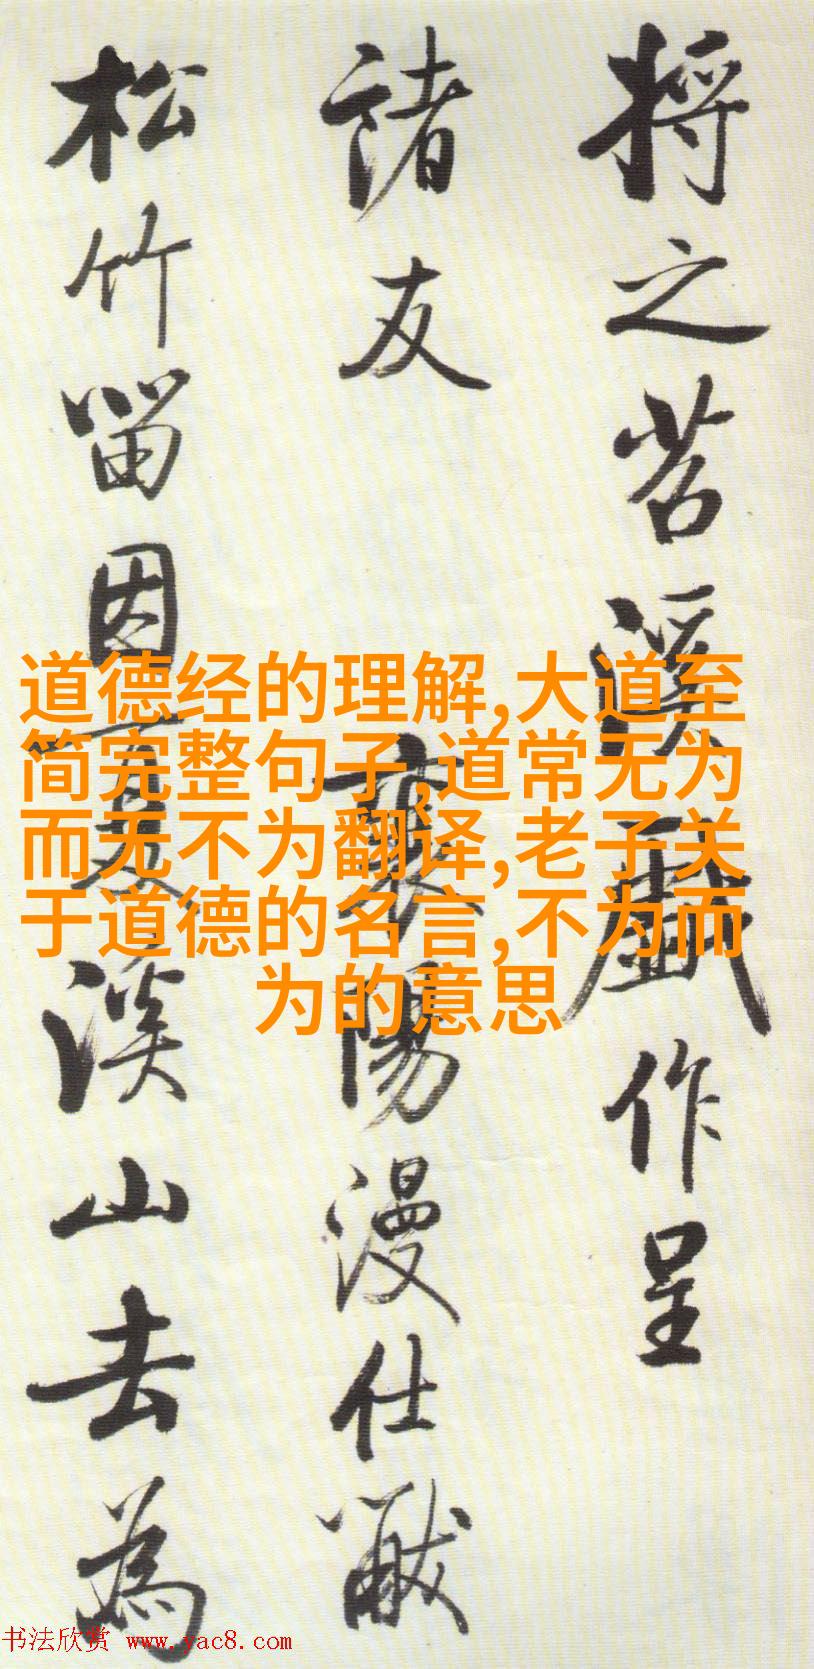 将之苕溪戲作呈
諸友
襄陽漫仕黻
松竹留因夏溪山去為
道德经的理解,大道至
简完整句子,道常无为
而无不为翻译,老子关
于道德的名言,不为而
为的意思
书法欣赏 www.yac8.com